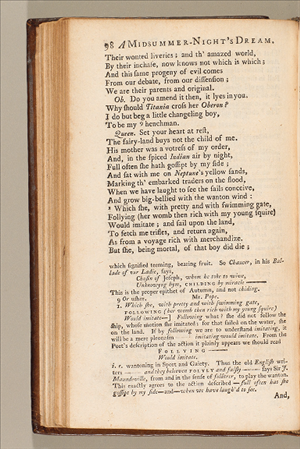 98 A MIDSUMMER-NIGHT'S DREAM.
Their wonted liveries; and th' amazed world,
By their inchase, now knows not which is which;
And this same progeny of evil comes
From our debate, from our dissension;
We are their parents and original.
Ob. Do you amend it then, it lyes in you.
Why should Titania cross her Oberon?
I do but beg a little changeling boy,
To be my 9 henchman.
Queen. Set your heart at rest,
The fairy-land buys not the child of me.
His mother was a votress of my order,
And, in the spiced Indian air by night,
Full often she hath gossipt by my side;
And sat with me on Neptune's yellow sands,
Marking th' embarked traders on the flood,
When we have laught to see the sails conceive,
And grow big-bellied with the wanton wind:
1 Which she, with pretty and with swimming gate,
Follying (her womb then rich with my young squire)
Would imitate; and sail upon the land,
To fetch me trifles, and return again,
As from a voyage rich with merchandize.
But she, being mortal, of that boy did die;
which signified teeming, bearing fruit. So Chaucer, in his Bal-
lade of our Ladie, says,
Chosin of Joseph, whom he toke to wive,
Unknowyng hym, CHILDING by miracle
This is the proper epithet of Autumn, and not chiding.
9 Or usher. Mr. Pope.
1 Which she, with pretty and with swimming gate,
FOLLOWING (her womb then rich with my young squire)
Would imitate— ] Following what? she did not follow the
ship, whose motion she imitated: for that sailed on the water, she
on the land. If by following we are to understand imitating, it
will be a mere pleonasm imitating would imitate. From the
Poet's description of the action it plainly appears we should read
FOLLYING
Would imitate.
i. e. wantoning in sport and Gaiety. Thus the old English wri-
ters — and they beleeven FOLYLY and falsly — says Sir J.
Maundeville, from and in the sense of folâtrer, to play the wanton.
This exactly agrees to the action described — full often has she
gossipt by my side—and—when we have laugh'd to see.
And,